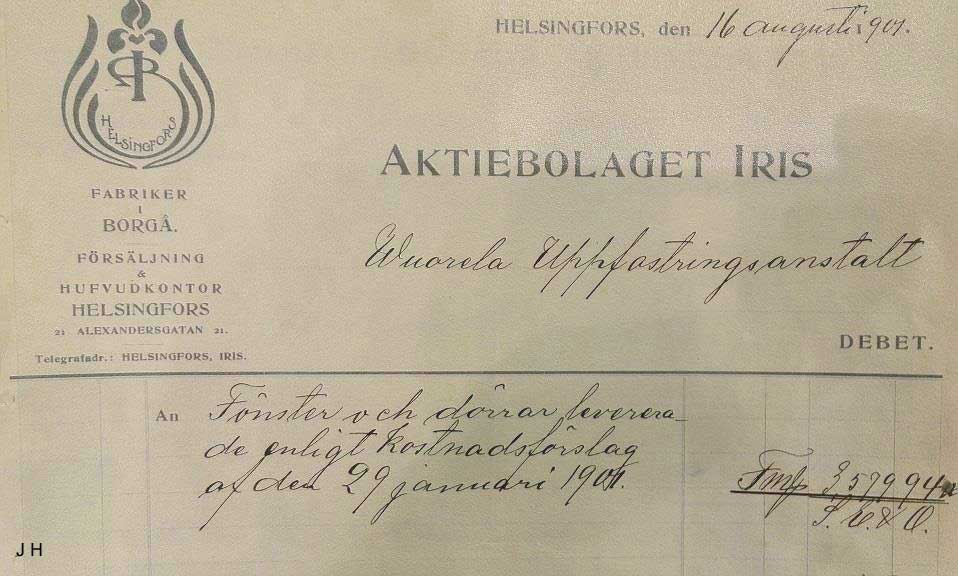 HELSINGFORS, den 16 augusti 1901.
HELSINGFORS
AKTIEBOLAGET IRIS
FABRIKER
I
BORGÅ.
FÖRSÄLJNING
&
HUFVUDKONTOR
HELSINGFORS
21 ALEXANDERSGATAN 21.
Telegrafadr.: HELSINGFORS, IRIS.
Wuorela Uppfostringsanstalt
DEBET.
An Fönster och dörrar leverera-
de enligt kostnadsförslag
af den 29 januari 1901.
Fmk 3579 94
S. E. & O.
J H